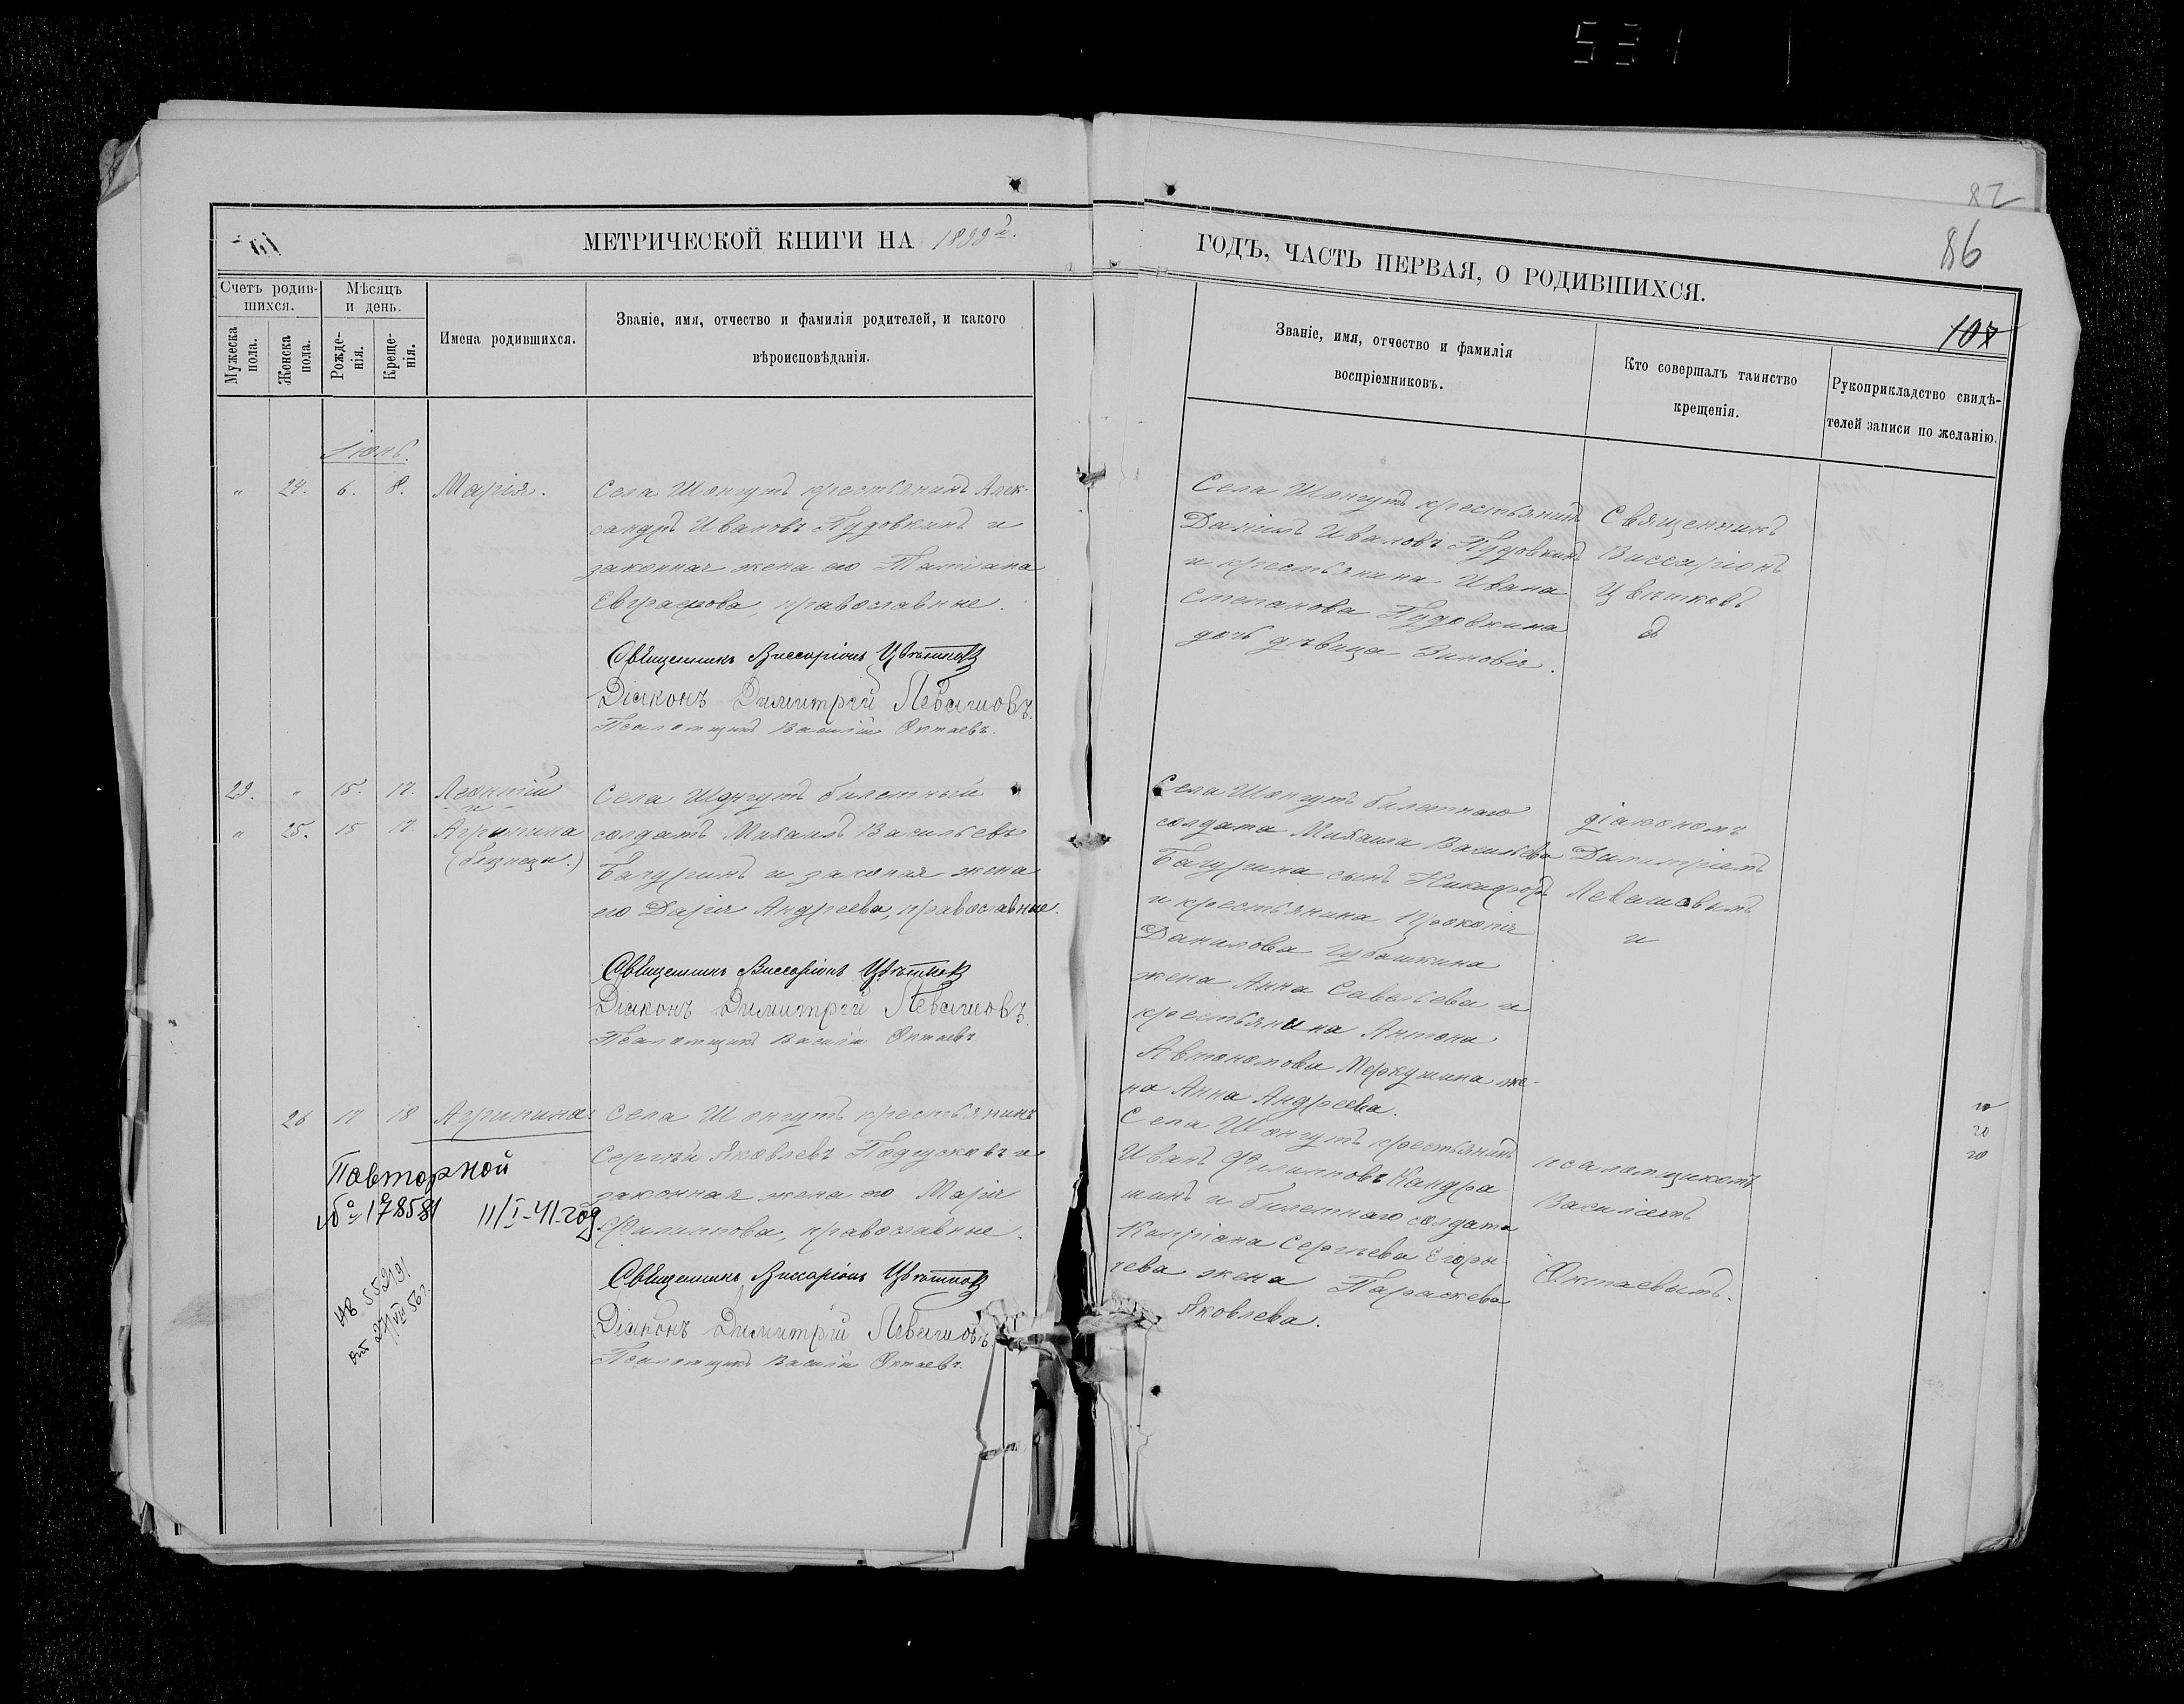 531
82
86
МЕТРИЧЕСКОЙ КНИГИ НА 1899й.
ГОДЪ, ЧАСТЬ ПЕРВАЯ, О РОДИВШИХСЯ.
107
Счетъ родив-
шихся.
Мужеска
пола.
Женска
пола.
Мѣсяцъ
и день.
Рожде-
нія.
Креще-
нія.
Имена родившихся.
Званіе, имя, отчество и фамилія родителей, и какого
вѣроисповѣданія.
Званіе, имя, отчество и фамилія
воспріемниковъ.
Кто совершалъ таинство
крещенія.
Рукоприкладство свидѣ-
телей записи по желанію.
Іюнь.
" 24. 6. 8. Марія.
Села Шонгутъ крестьянинъ Алек-
сандръ Ивановъ Пудовкинъ и
законная жена его Татіана
Евграфова, православные.
Священникъ Виссаріонъ Цвѣтковъ
Діаконъ Димитрій Левашовъ.
Псаломщикъ Василій Октаевъ.
Села Шонгутъ крестьянинъ
Даніилъ Ивановъ Пудовкинъ
и крестьянина Ивана
Степанова Пудовкина
дочь дѣвица Зиновія.
Священникъ
Виссаріонъ
Цвѣтковъ
29. " 15. 17. Леонтій
и
" 25. 15 17. Агрипина
(близнецы.)
Села Шонгутъ билетный
солдатъ Михаилъ Васильевъ
Бачуринъ и законая жена
его Дарія Андреева, православные.
Священникъ Виссаріонъ Цвѣтковъ
Діаконъ Димитрій Левашовъ.
Псаломщикъ Василій Октаевъ
Села Шонгутъ билетнаго
солдата Михаила Васильева
Бачурина сынъ Никифоръ
и крестьянина Прокопія
Данилова Губашкина
жена Анна Савельева и
крестьянина Антона
Автономова Меркушина же-
на Анна Андреева.
діакономъ
Димитріемъ
Левашовымъ
и
26 17 18 Агрипина.
Села Шонгутъ крестьянинъ
Сергѣй Яковлевъ Подусковъ и
законная жена его Марія
Филиппова, православные.
Священникъ Виссаріонъ Цвѣтковъ
Діаконъ Димитрій Левашовъ.
Псаломщикъ Василій Октаевъ.
Повторной
№ 178581 11/I-41-год
552191
от 27/VII 56 г.
Села Шонгутъ крестьянинъ
Иванъ Филипповъ Кандра-
шинъ и билетнаго солдата
Капріана Сергѣева Егоры-
чева жена Параскева
Яковлева.
псаломщикомъ
Василіемъ
Октаевымъ.
20
20